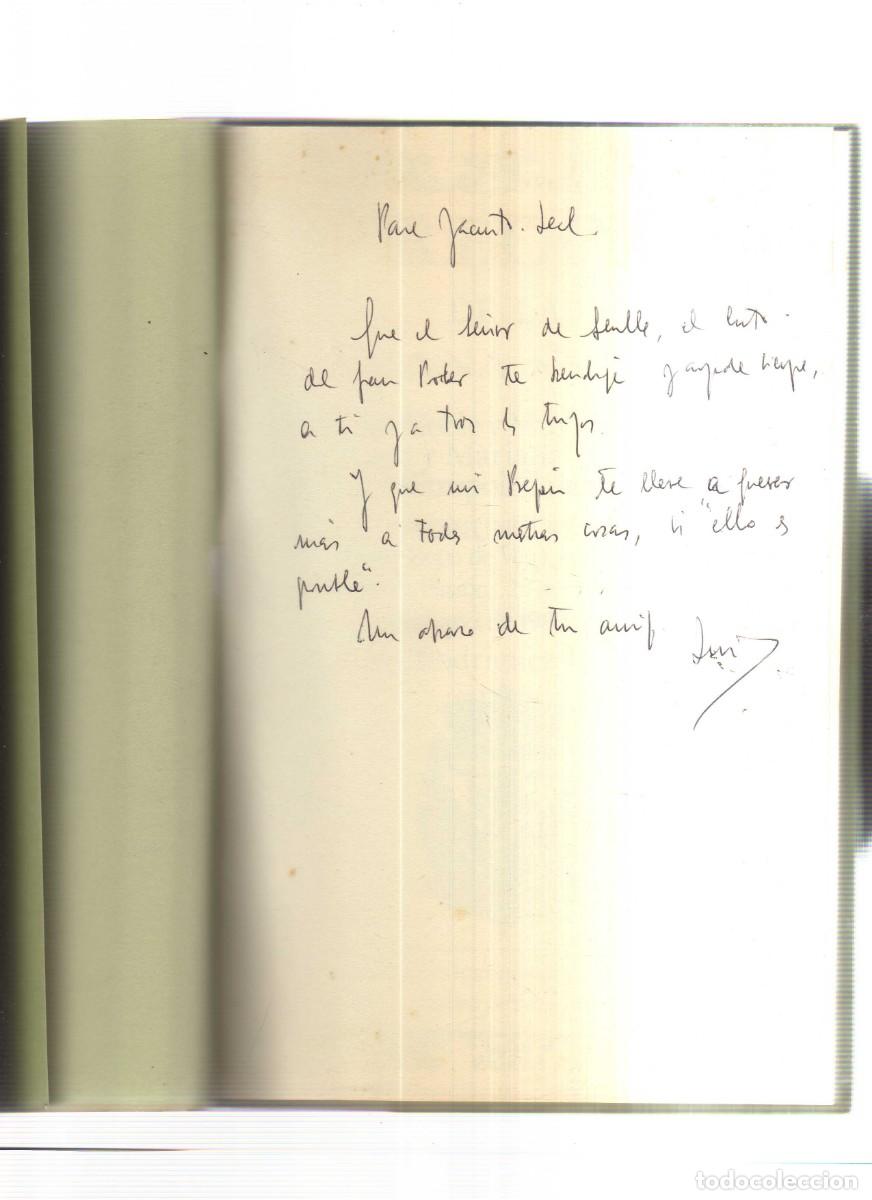 Para Jacinto.
Que el Señor de Sevilla, el Cristo
del Gran Poder te bendiga y ayude siempre,
a ti y a todos los tuyos.
Y que mi Pregón te lleve a querer
más a todas nuestras cosas, si "ello es
posible".
Un abrazo de tu amigo
todocoleccion